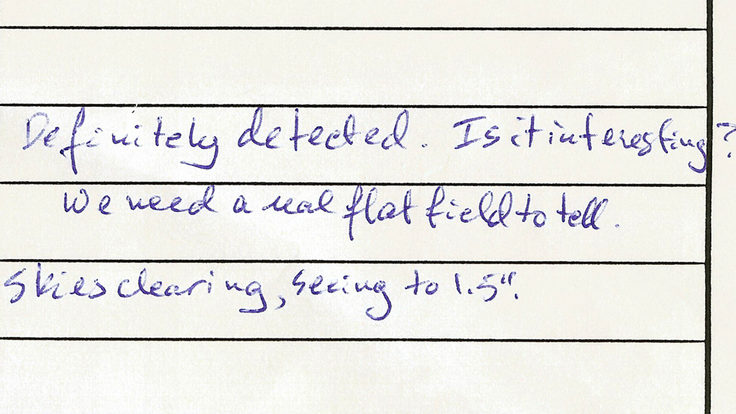 Definitely detected. Is it interesting?
We need a real flat field to tell.
Skies clearing, seeing to 1.5".